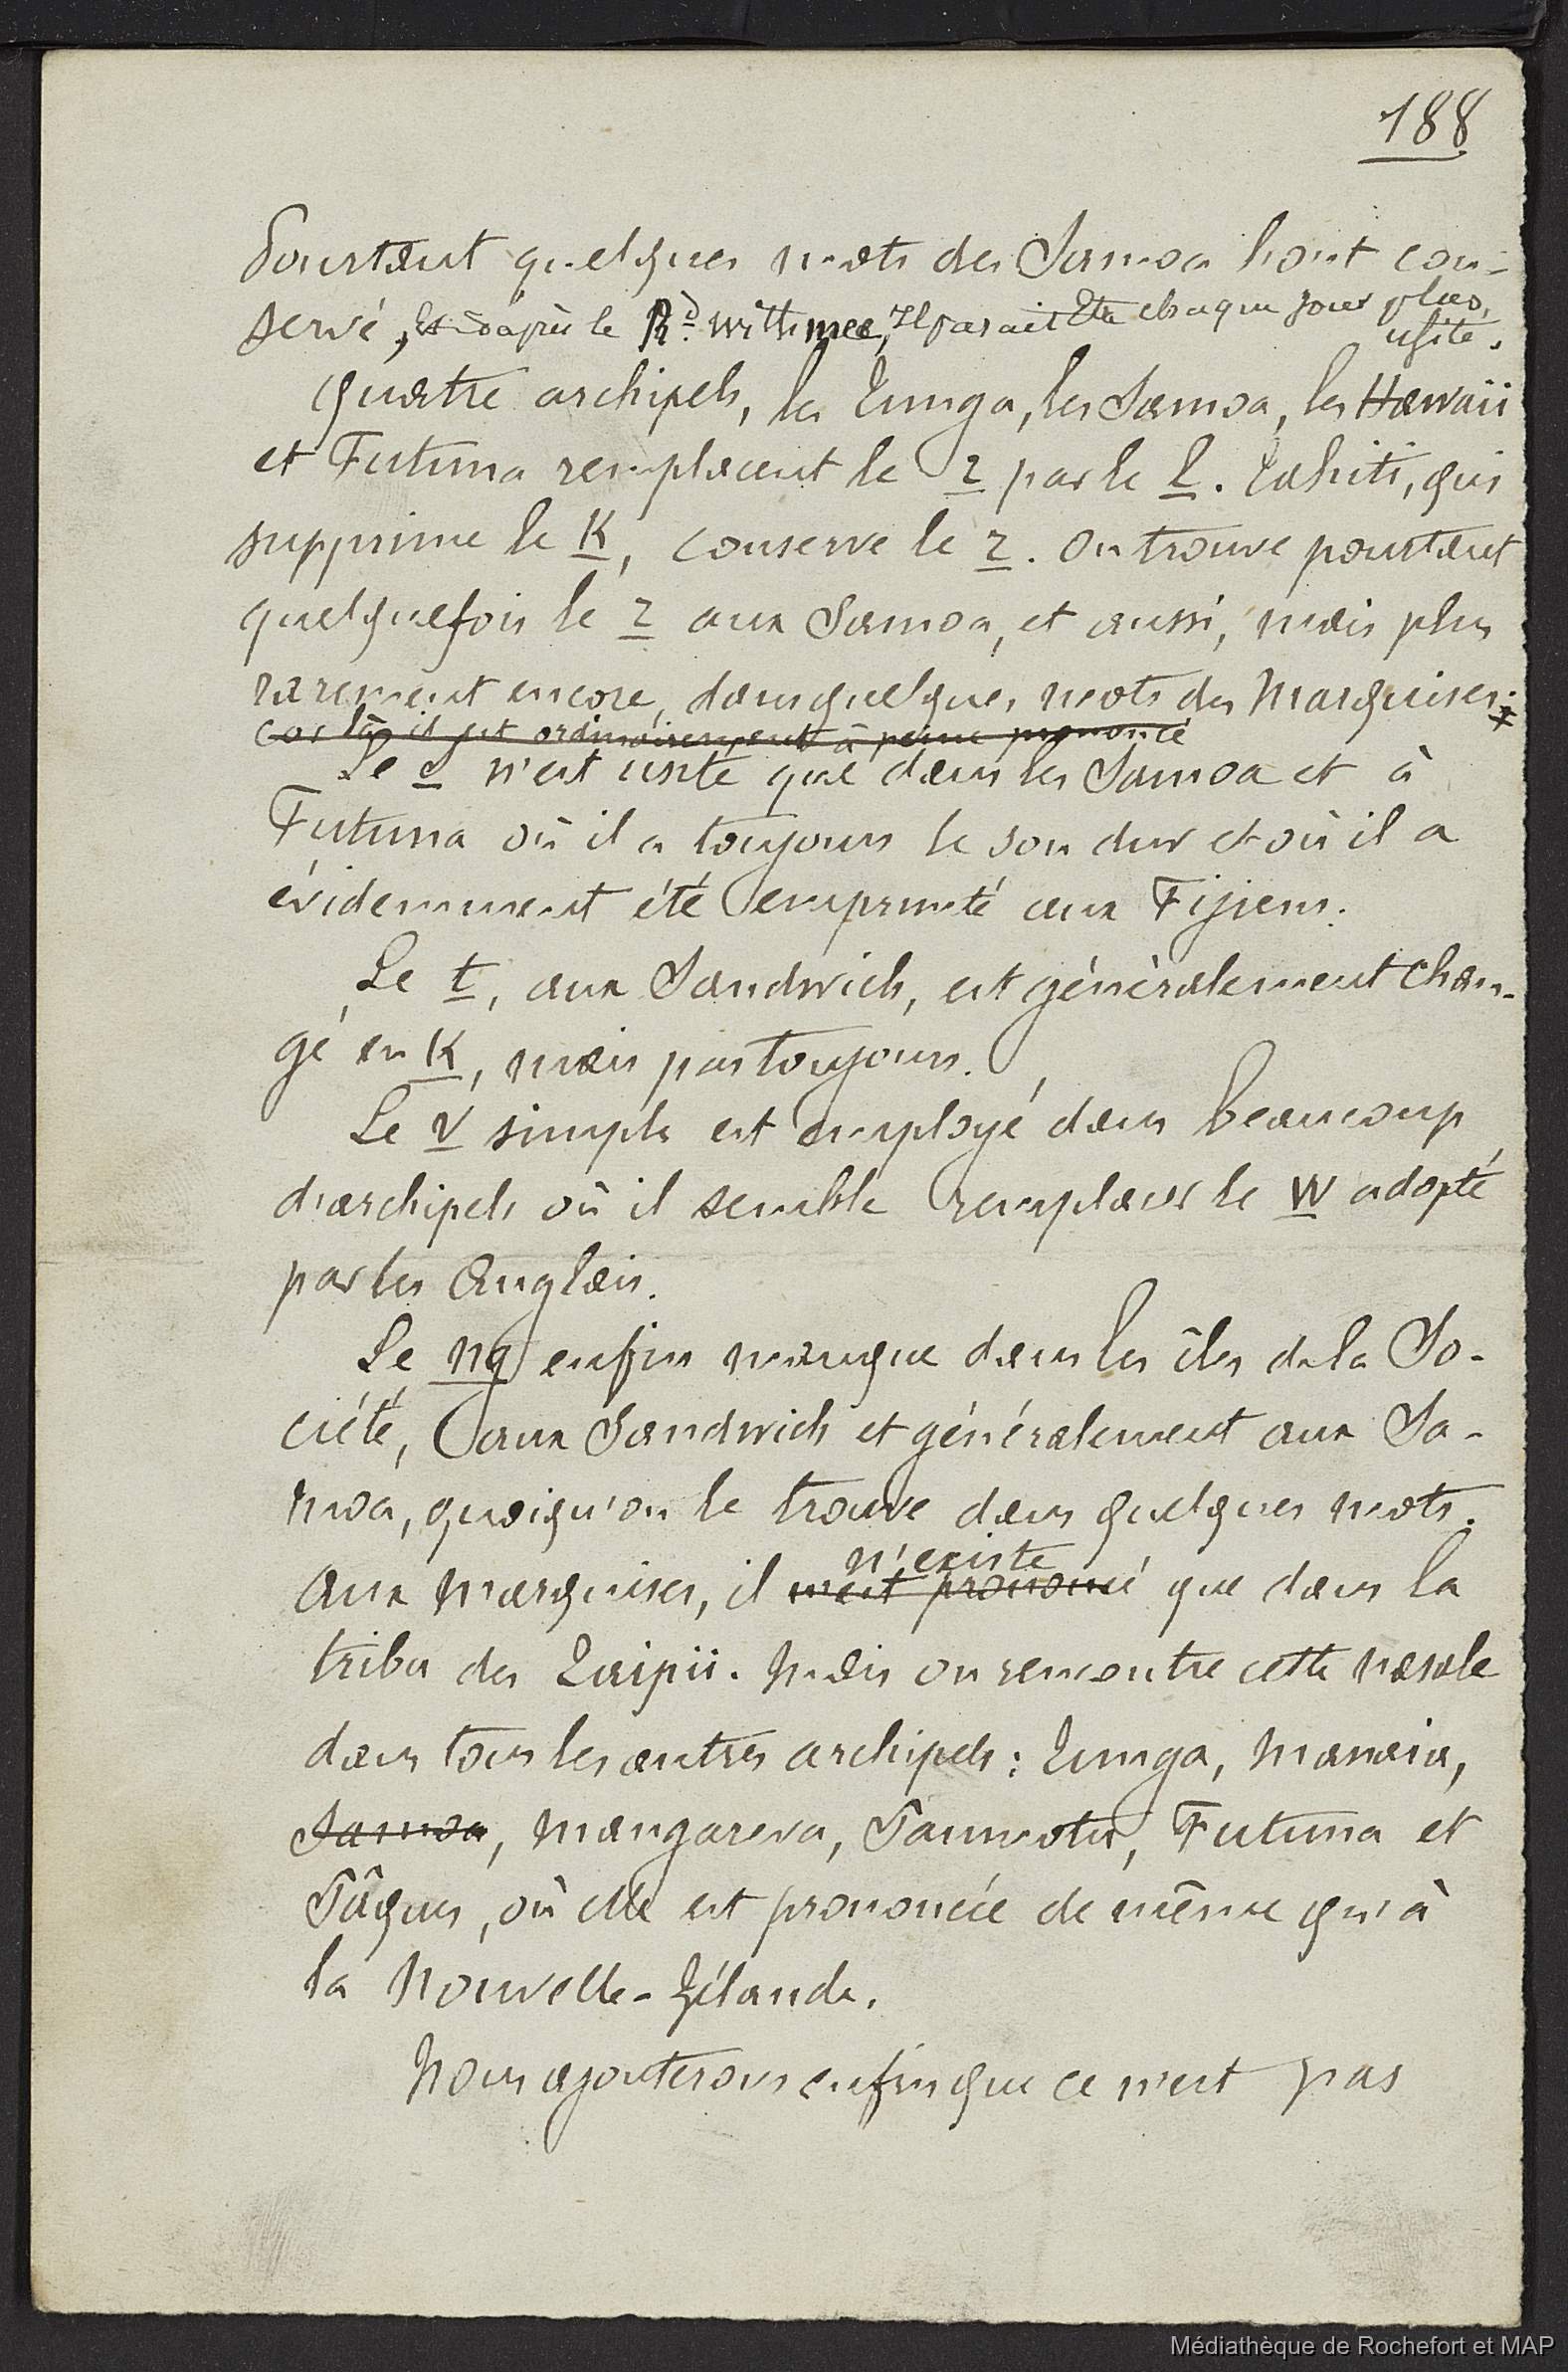 188
Pourtant quelques mots des Samoa l'ont con-
servé, Et d'après le Rd. Withmee, Il parait être chaque jour plus
usité.
Quatre archipels, les Tunga, les Samoa, les Hawaii
et Futuna remplacent le r par le l. Tahiti, qui
supprime le K, conserve le r. On trouve pourtant
quelquefois le r aux Samoa, et aussi, mais plus
rarement encore, dans quelques mots des Marquises:
car là il est ordinairement à peine prononcé
Le s n'est usité que dans les Samoa et à
Futuna où il a toujours le son dur et où il a
évidemment été emprunté aux Fijiens.
Le t, aux Sandwich, est généralement chan-
gé en K, mais pas toujours.
Le v simple est employé dans beaucoup
d'archipels où il semble remplacer le W adopté
par les Anglais.
Le ng enfin manque dans les îles de la So-
ciété, aux Sandwich et généralement aux Sa-
moa, quoiqu'on le trouve dans quelques mots.
n'existe
Aux Marquises, il n'est prononcé que dans la
tribu des Taipii. Mais on rencontre cette nasale
dans tous les autres archipels: Tunga, Manaia,
Samoa, Mangareva, Paumotu, Futuna et
Pâques, où elle est prononcée de même qu'à
la Nouvelle-Zélande.
Nous ajouterons enfin que ce n'est pas
Médiathèque de Rochefort et MAP